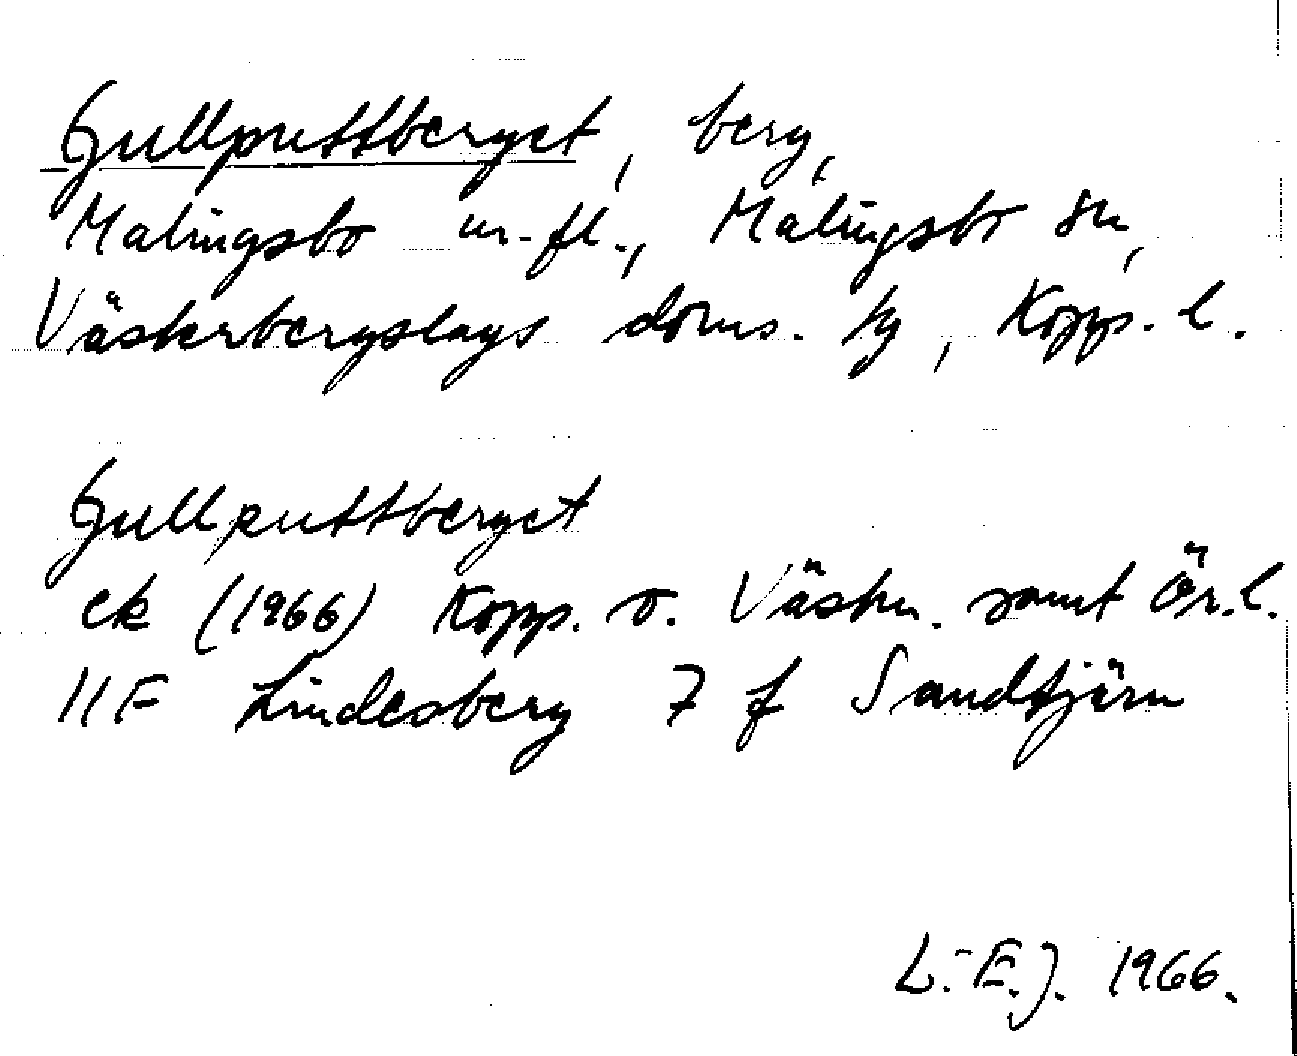 Gullputtberget, berg,
Malingsbo ur-fl., Malingsbo sn,
Västerbergslags doms. tg, Kopp. l.
Gullputtberget
ek (1966) Kopp. o. Västm. samt Ör. l.
11F Lindesberg 7 f Sandtjärn
L.-E.J. 1966.